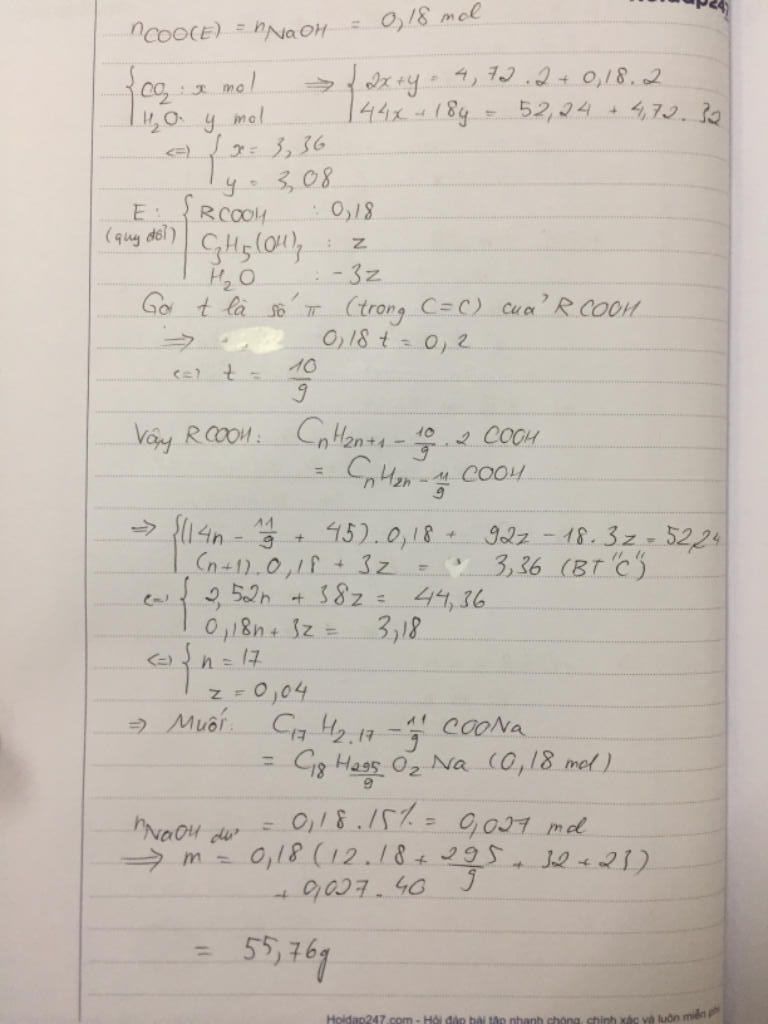 Hoidap247
nCOO(E) = nNaOH = 0,18 mol
{ CO2 : x mol ⇒ { 2x+y = 4,72.2 + 0,18.2
H2O: y mol 44x+18y = 52,24 + 4,72.32
<=> { x = 3,36
y = 3,08
E: { RCOOH : 0,18
(quy đổi) C3H5(OH)3 : z
H2O : -3z
Gọi t là số π (trong C=C) của RCOOH
⇒ 0,18t = 0,2
<=> t = 10/9
Vậy RCOOH: CnH2n+1-10/9.2 COOH
= CnH2n-11/9 COOH
⇒ { (14n - 11/9 + 45).0,18 + 92z - 18.3z = 52,24
(n+1).0,18 + 3z = 3,36 (BT "C")
<=> { 2,52n + 38z = 44,36
0,18n + 3z = 3,18
<=> { n = 17
z = 0,04
⇒ Muối: C17H2.17-11/9 COONa
= C18H295/9O2Na (0,18 mol)
nNaOH dư = 0,18.15% = 0,027 mol
⇒ m = 0,18(12.18 + 295/9 + 32 + 23)
+ 0,027.40
= 55,76g
Hoidap247.com - Hỏi đáp bài tập nhanh chóng, chính xác và luôn miễn phí